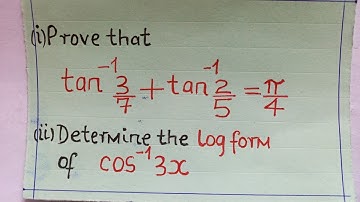 (i) Prove that
tan⁻¹ 3/7 + tan⁻¹ 2/5 = π/4
(ii) Determine the log form
of cos⁻¹ 3x